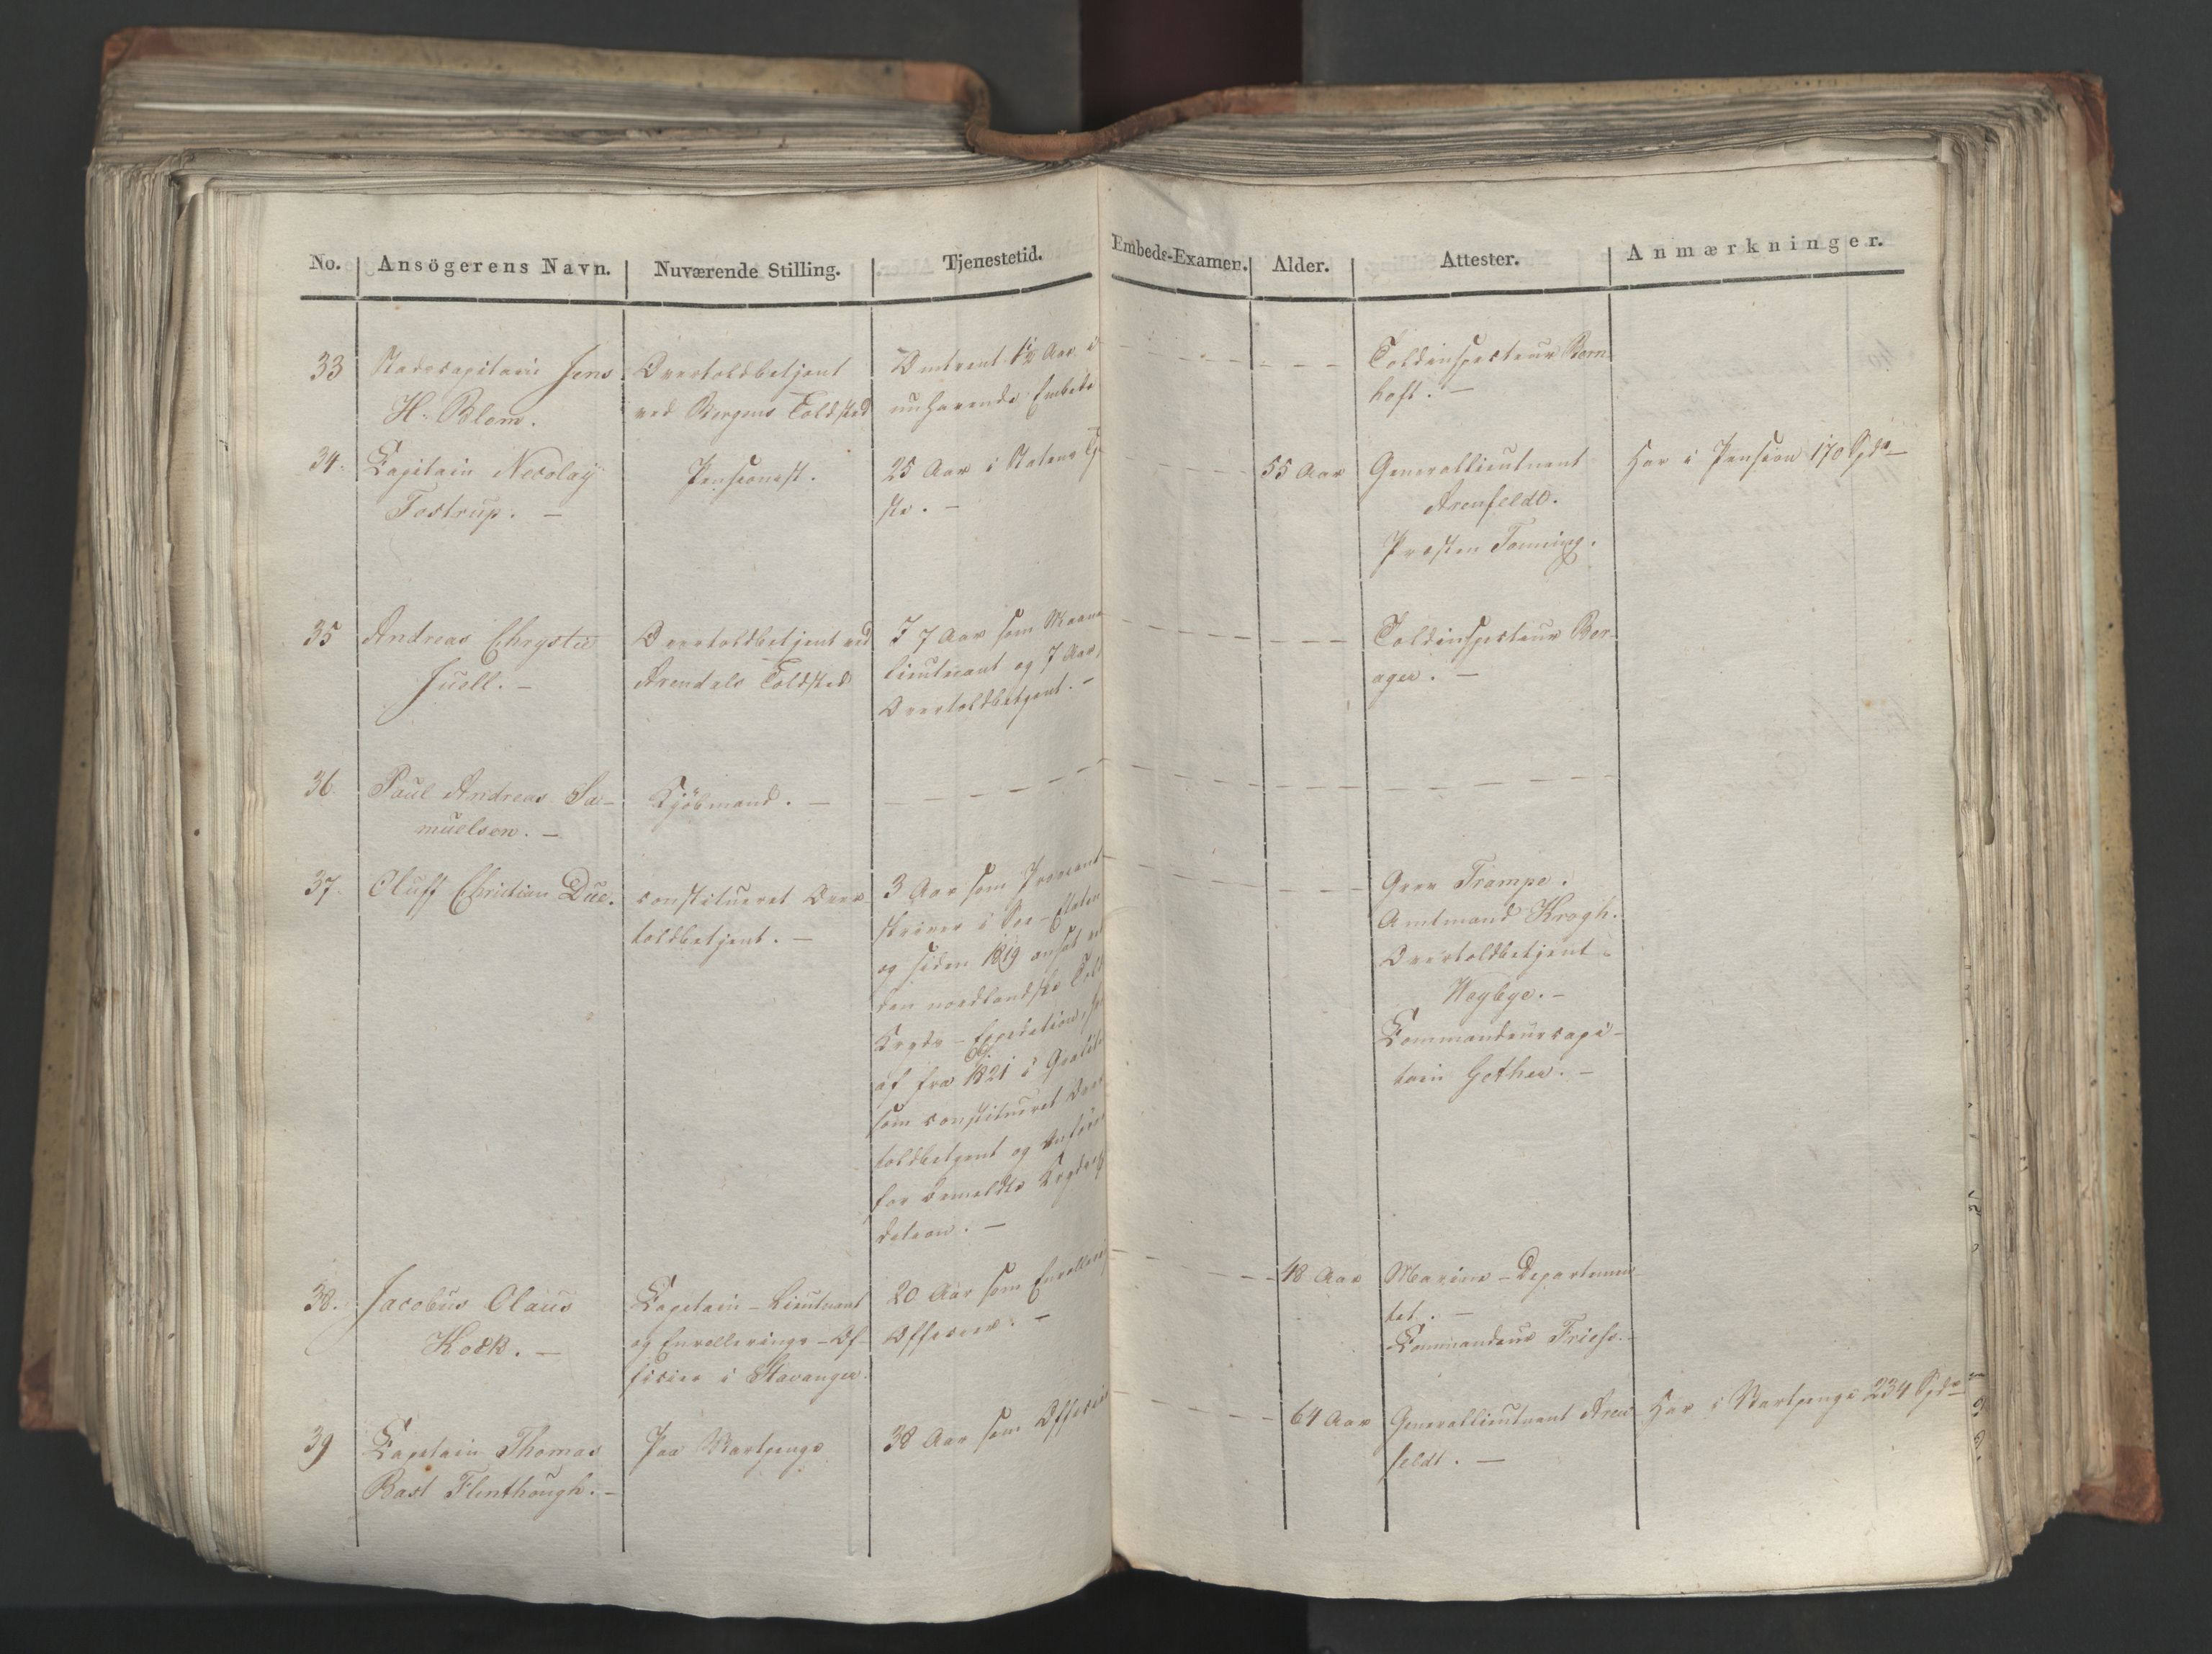 No. Ansögerens Navn. Nuværende Stilling. Tjenestetid. Embeds-Examen. Alder. Attester. Anmærkninger.
33 Stadscapitain Jens
H. Blom.
Overtoldbetjent
ved Bergens Toldsted
Omtrent 1½ Aar i
nuhavende Embede
Toldinspecteur Born
hoft. —
34. Capitain Nicolay
Tostrup. —
Pensionist.
25 Aar i Statens Tje
ste. —
55 Aar
Generallieutnant
Arenfeldt.
Præsten Tonning.
Har i Pension 170 Spd
35 Andreas Chrystie
Juell. —
Overtoldbetjent ved
Arendals Toldsted
I 7 Aar som Maaneds
lieutnant og 7 Aar,
Overtoldbetjent. —
Toldinspecteur Ber-
ager. —
36. Paul Andreas Sa-
muelsen. —
Kjöbmand. —
37. Oluff Christian Due.
constitueret Over
toldbetjent. —
3 Aar som Proviant
skriver i Söe-Etaten
og siden 1819 ansat ved
den nordlandske Told
Kryds-Expedition,
af fra 1821 i
som constitueret Over
toldbetjent og Anförer
for bemeldte Krydsexpe
dition. —
Grev Trampe.
Amtmand Krogh.
Overtoldbetjent
Weybye. —
Commandeurcapi-
tain Gother. —
38. Jacobus Claus
Kock. —
Capitain-Lieutnant
og Enrollerings-Of-
ficier i Stavanger.
20 Aar som Enrollerings
Officier. —
48 Aar
Marine-Departemen
tet. —
Commandeur Friese. —
39 Capitain Thomas
Bast Flinthough. —
Paa Vartpenge
38 Aar som Officier
64 Aar
Generallieutnant Aren
feldt. —
Har i Vartpenge 234 Spd